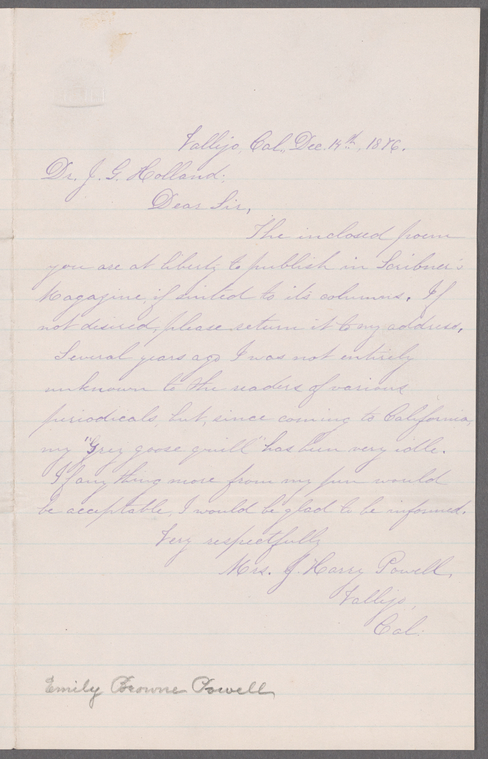 Vallejo, Cal., Dec. 14th, 1876.
Dr. J. G. Holland:
Dear Sir,
The inclosed poem
you are at liberty to publish in Scribner's
Magazine, if suited to its columns. If
not desired, please return it to my address.
Several years ago I was not entirely
unknown to the readers of various
periodicals, but, since coming to California,
my "grey goose quill" has been very idle.
If any thing more from my pen would
be acceptable, I would be glad to be informed.
Very respectfully,
Mrs. J. Harry Powell,
Vallejo,
Cal.
Emily Browne Powell